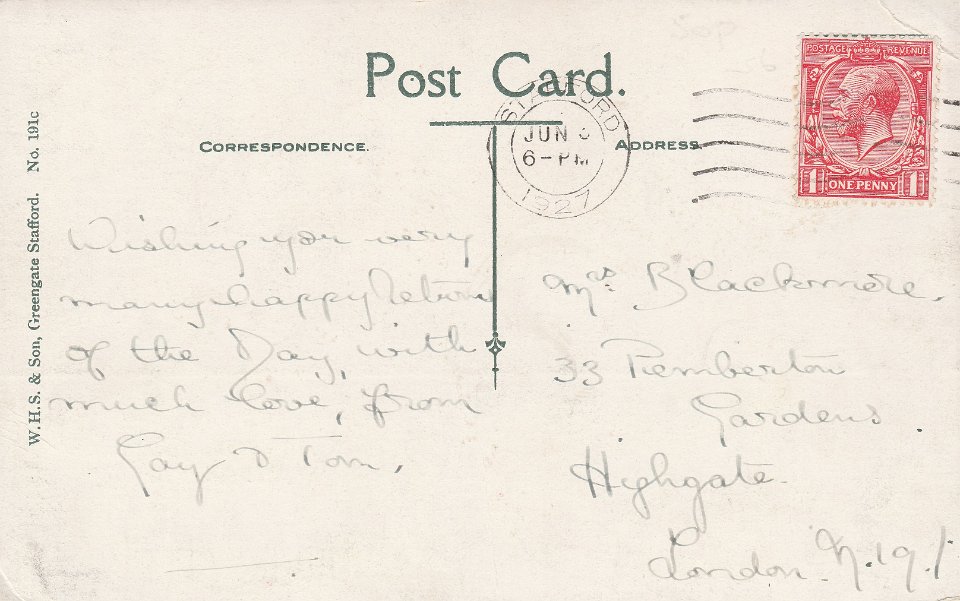 Post Card.
CORRESPONDENCE.
ADDRESS.
STAFFORD
JUN
6-PM
1927
POSTAGE REVENUE
1 ONE PENNY 1
W.H.S. & Son, Greengate Stafford. No. 191c
Wishing you very
many happy returns
of the Day, with
much love, from
Gay & Tom.
Mrs. Blackmore.
33 Pemberton
Gardens
Highgate.
London. N.19.